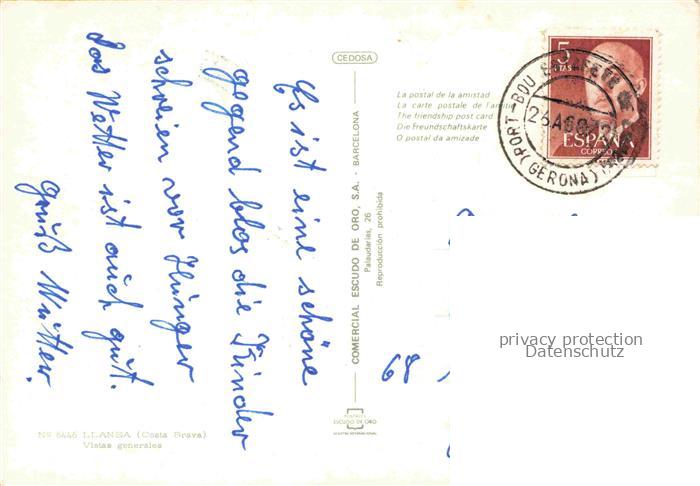 Es ist eine schöne
gegend blos die Kinder
schreien vor Hunger
das Wetter ist auch gut.
gruß Mutter.
CEDOSA
COMERCIAL ESCUDO DE ORO, S.A. - BARCELONA
Palaudarias, 26
Reproducción prohibida
POSTALES
ESCUDO DE ORO
Nº 6446 LLANSA (Costa Brava)
Vistas generales
La postal de la amistad
La carte postale de l'amitié
The friendship post card
Die Freundschaftskarte
O postal da amizade
5
PTAS
ESPAÑA
CORREO
PORT-BOU
(GERONA)
privacy protection
Datenschutz
68